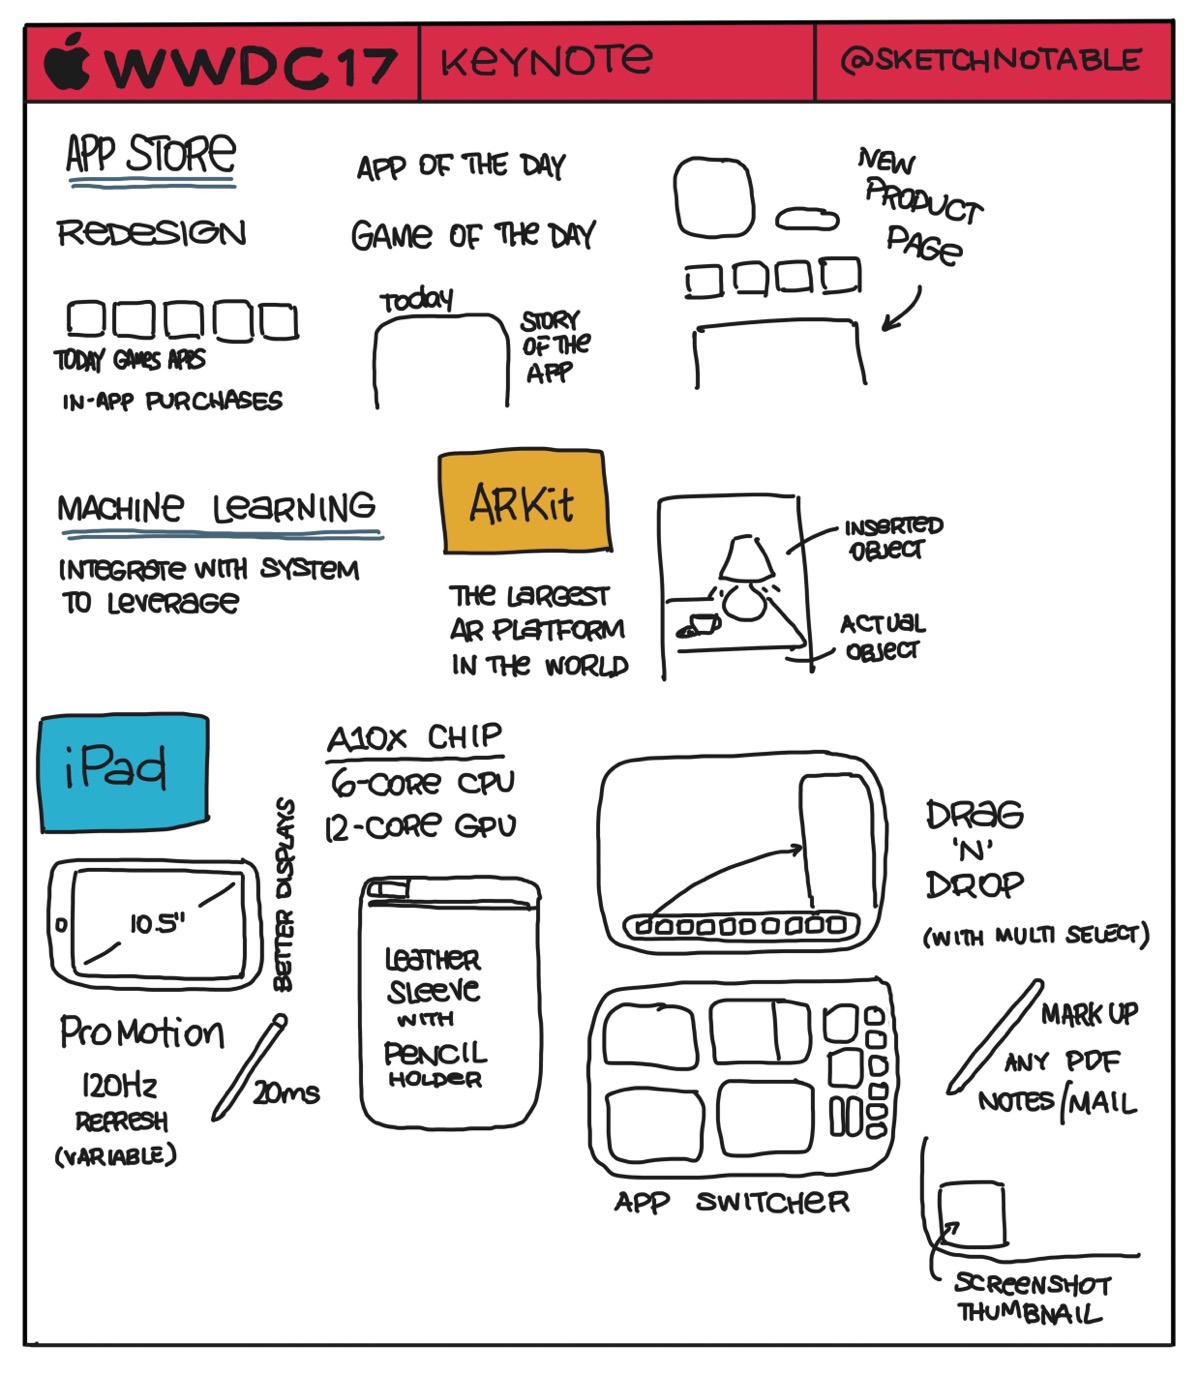 WWDC17
KEYNOTE
@SKETCHNOTABLE
APP STORE
REDESIGN
TODAY GAMES APPS
IN-APP PURCHASES
APP OF THE DAY
GAME OF THE DAY
Today
STORY
OF THE
APP
NEW
PRODUCT
PAGE
MACHINE LEARNING
INTEGRATE WITH SYSTEM
TO LEVERAGE
ARKit
THE LARGEST
AR PLATFORM
IN THE WORLD
INSERTED
OBJECT
ACTUAL
OBJECT
iPad
10.5"
BETTER DISPLAYS
ProMotion
120Hz
REFRESH
(VARIABLE)
20ms
A10X CHIP
6-CORE CPU
12-CORE GPU
LEATHER
SLEEVE
WITH
PENCIL
HOLDER
DRAG
'N'
DROP
(WITH MULTI SELECT)
APP SWITCHER
MARK UP
ANY PDF
NOTES/MAIL
SCREENSHOT
THUMBNAIL